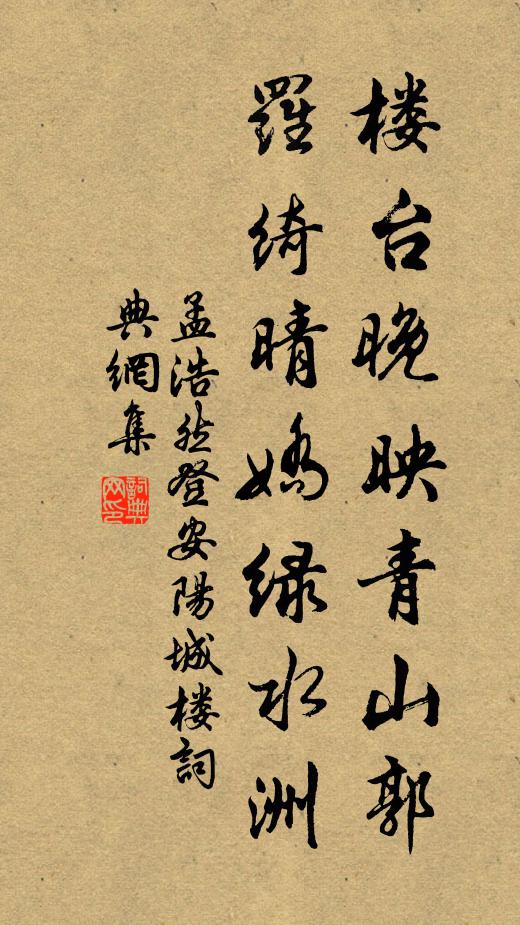 楼台晚映青山郭
羅绮晴嬌绿水洲
孟浩然登安陽城楼詞
典網集
詞典
网印